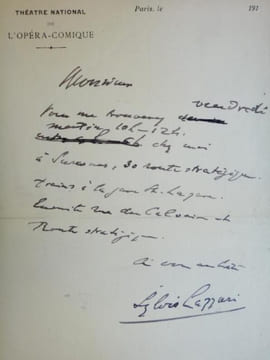 THÉATRE NATIONAL
DE
L'OPÉRA-COMIQUE
Paris, le 191
Monsieur
vendredi
Vous me trouverez
10h-12h.
chez moi
à Suresnes, 30 route stratégique.
trains à la gare St. Lazare.
rue du Calvaire et
Route stratégique.
Sylvio Lazzari